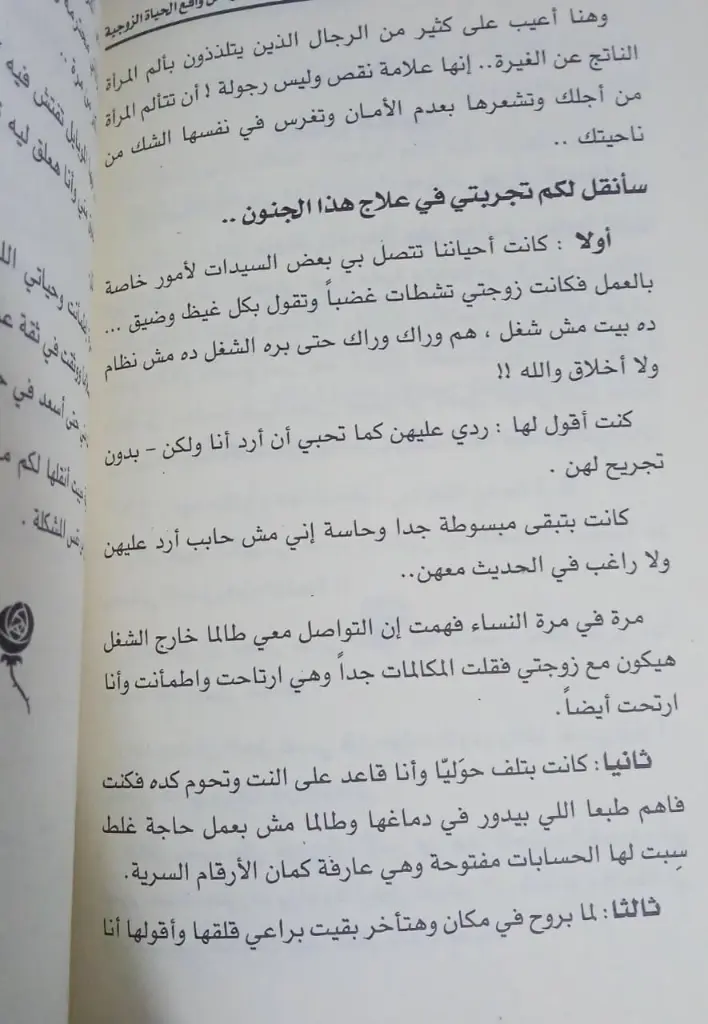 واقع الحياة الزوجية
وهنا أعيب على كثير من الرجال الذين يتلذذون بألم المرأة
الناتج عن الغيرة.. إنها علامة نقص وليس رجولة ! أن تتألم المرأة
من أجلك وتشعرها بعدم الأمان وتغرس في نفسها الشك من
ناحيتك ..
سأنقل لكم تجربتي في علاج هذا الجنون ..
أولا : كانت أحياننا تتصل بي بعض السيدات لأمور خاصة
بالعمل فكانت زوجتي تشطات غضباً وتقول بكل غيظ وضيق ...
ده بيت مش شغل ، هم وراك وراك حتى بره الشغل ده مش نظام
ولا أخلاق والله !!
كنت أقول لها : ردي عليهن كما تحبي أن أرد أنا ولكن – بدون
تجريح لهن .
كانت بتبقى مبسوطة جدا وحاسة إني مش حابب أرد عليهن
ولا راغب في الحديث معهن..
مرة في مرة النساء فهمت إن التواصل معي طالما خارج الشغل
هيكون مع زوجتي فقلت المكالمات جداً وهي ارتاحت واطمأنت وأنا
ارتحت أيضاً.
ثانيا: كانت بتلف حوَليّا وأنا قاعد على النت وتحوم كده فكنت
فاهم طبعا اللي بيدور في دماغها وطالما مش بعمل حاجة غلط
سِبت لها الحسابات مفتوحة وهي عارفة كمان الأرقام السرية.
ثالثا: لما بروح في مكان وهتأخر بقيت براعي قلقها وأقولها أنا
تفتش فيه
وأنا هعلق ليه
وحياتي
في ثقة
أسعد في
أنقلها لكم
المشكلة .